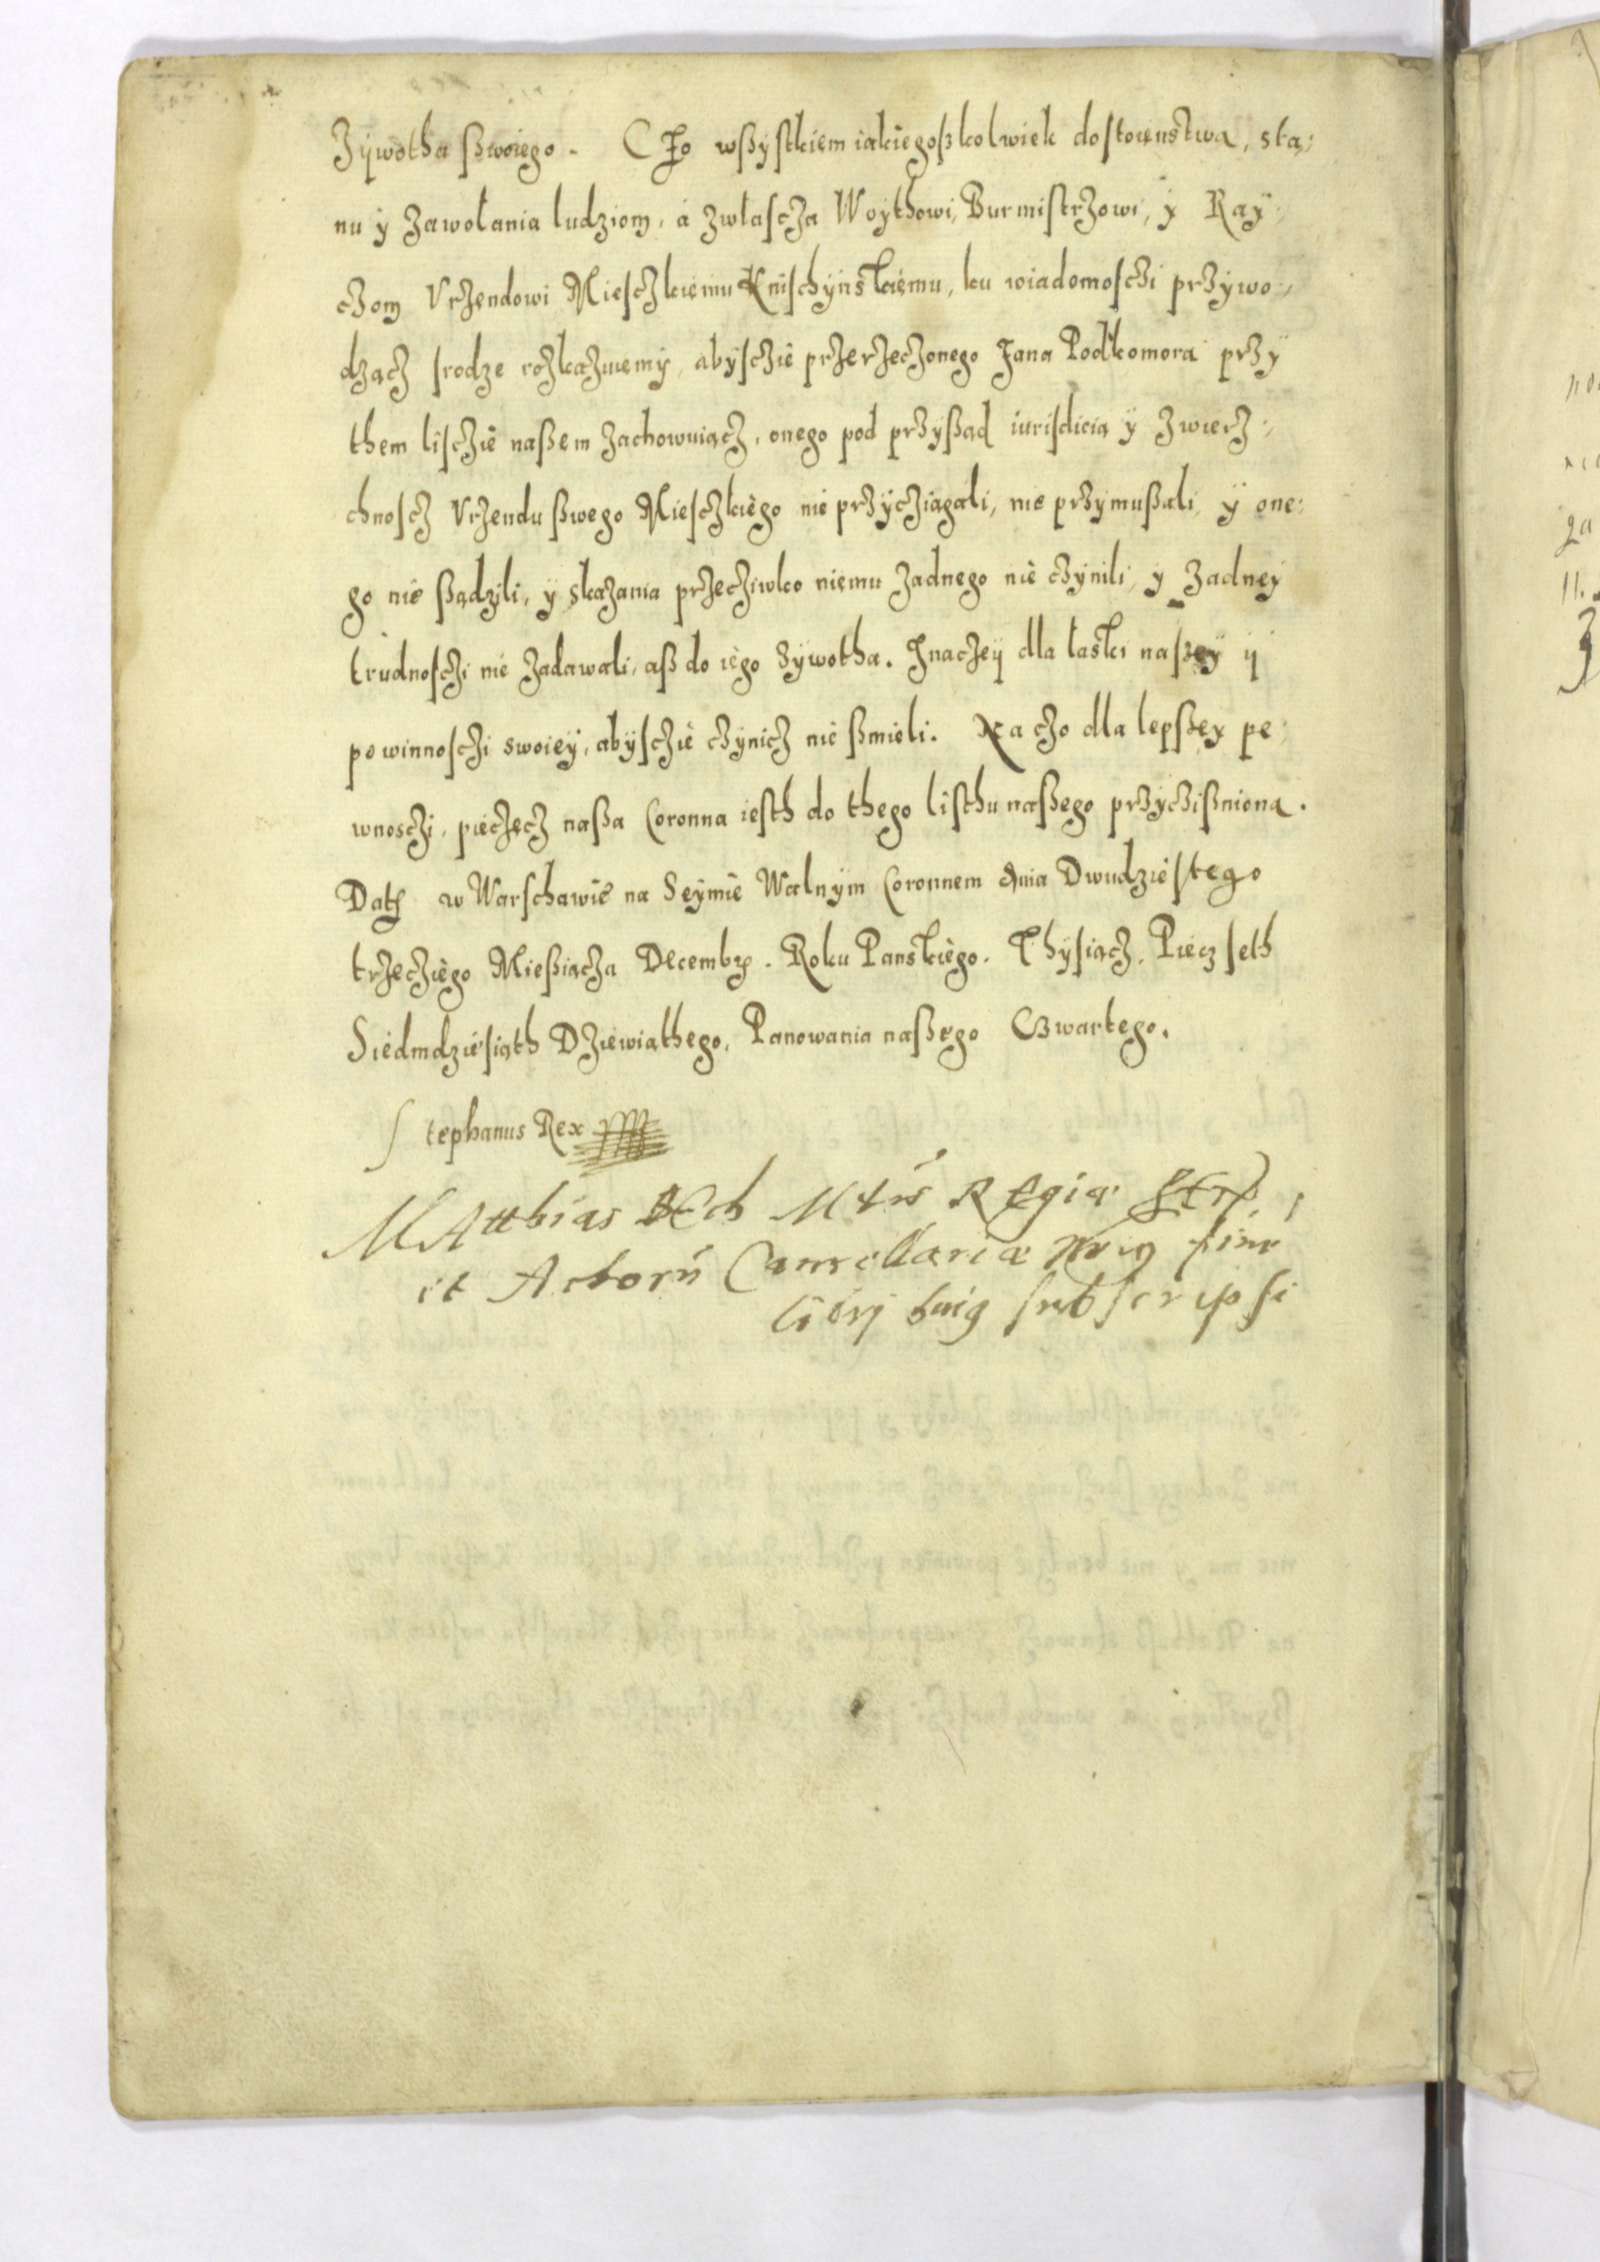 Zÿwotha ßwoiego. Czo wßÿstkiem iakiegoßkolwiek dostoienstwa, sta,,
nu ÿ zawołania ludziom, á zwłascza Woythowi, Burmistrzowi, ÿ Ray,,
czom Vrzendowi Miesczkiemu Knischÿnskiemu, ku wiadomosczi przÿwo,,
dzącz srodze rozkazuiemÿ, abÿsczie przerzeczonego Jana Podkomora przÿ
them lisczie naßem zachowuiącz, onego pod przÿßąd iurisdicią ÿ zwierz,,
chnoscz Vrzendu ßwego Miesczkiego nie przÿcziągali, nie przÿmußali, ÿ one,,
go nie ßądzili, ÿ skazania przecziwko niemu zadnego nie czÿnili, ÿ zadneÿ
trudnosczi nie zadawali, aß do iego zÿwotha. Jnaczeÿ dla łaski naszeÿ ÿ
powinnosczi swoieÿ, abÿsczie czÿnicz nie ßmieli. Na czo dla lepßeÿ pe,,
wnosczi, pieczecz naßa Coronna iesth do thego listhu naßego przÿczißniona.
Datt w Warschawie na Seÿmie Walnÿm Coronnem dnia Dwudziestego
trzecziego Mießiącza Decembr. Roku Panskiego. Thÿsiącz, Piecz seth
Siedmdziesiąth Dziewiąthego, Panowania naßego Czwartego.
Stephanus Rex
Matthias Mtis Regiae
et Actorū Cancellariae
libri huiꝰ subscripsi